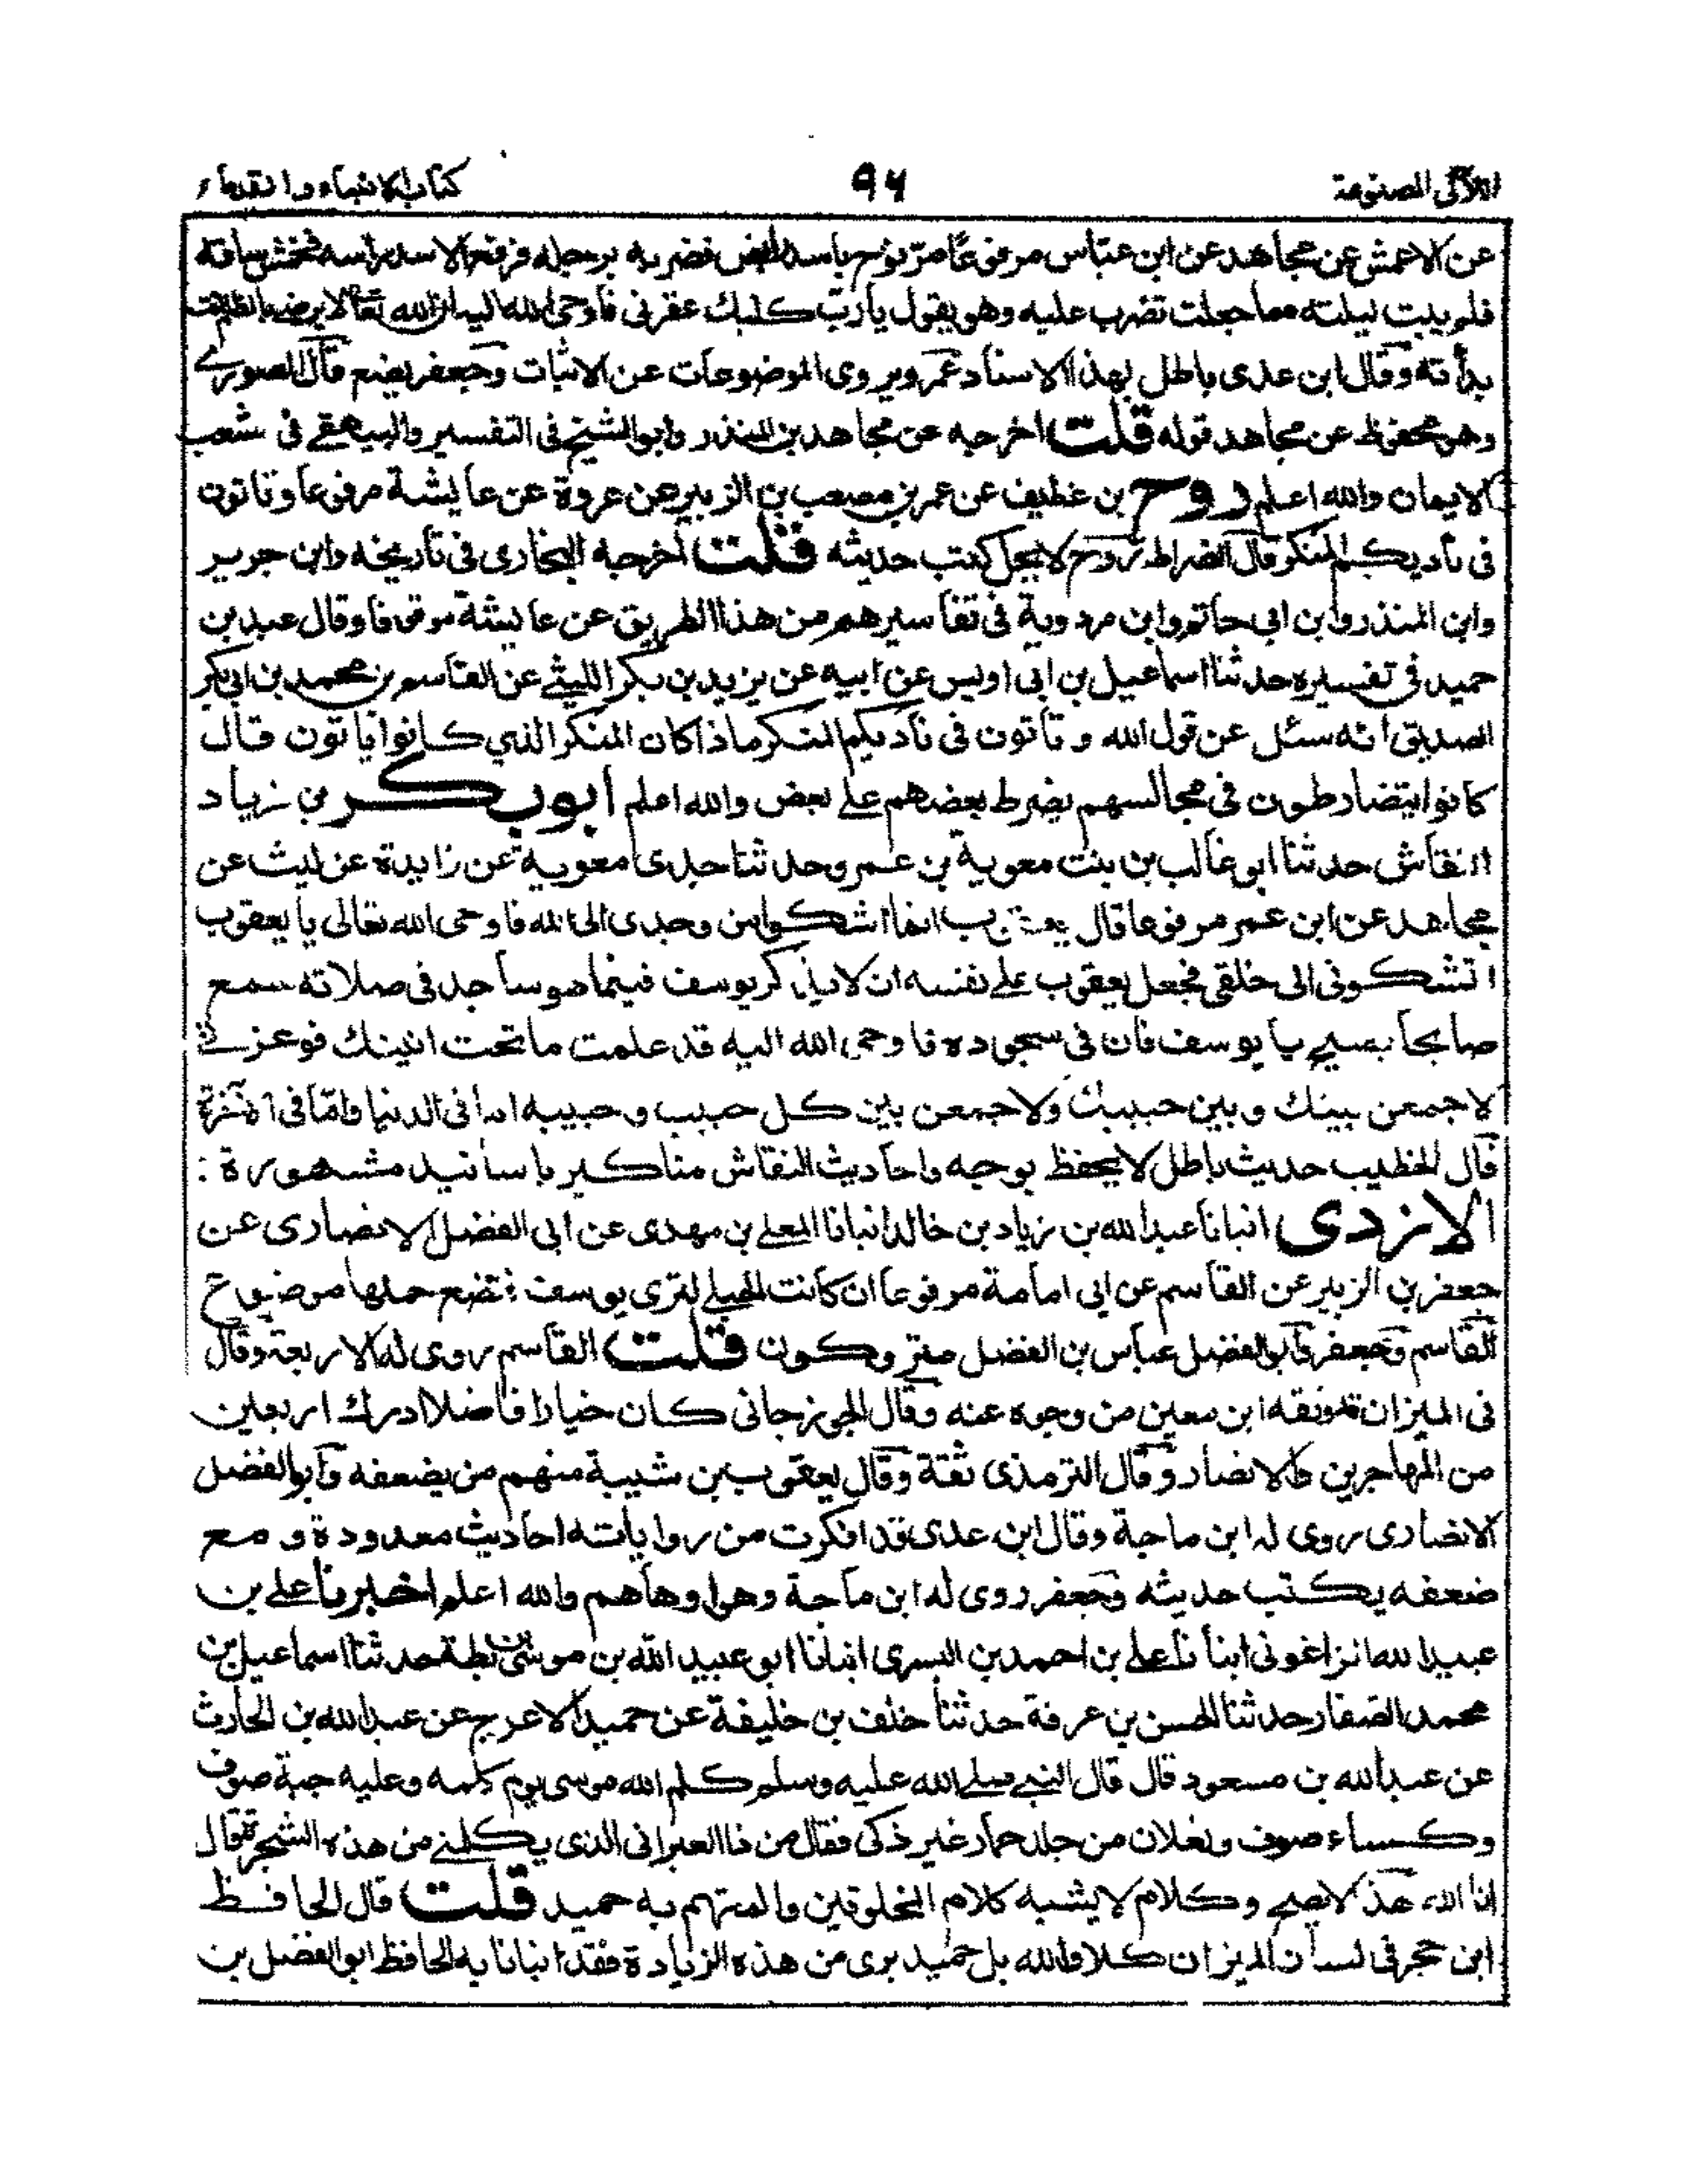 اللآلى المصنوعة
٩٦
كتاب الانبياء والقدماء
عن الاعمش عن مجاهد عن ابن عباس مرفوعا مر نوح باسد رابض فضربه برجله فرفع الاسد راسه فخمش ساقه
فلم يبت ليلته مما جعلت تضرب عليه وهو يقول يارب كلبك عقرنى فاوحى الله اليه ان الله تعالى لا يرضى بالظلم انت
بدأته وقال ابن عدى باطل بهذا الاسناد عمرو يروى الموضوعات عن الاثبات وجعفر يضع قال الصورے
وهو محفوظ عن مجاهد قوله قلت اخرجه عن مجاهد بن المنذر وابو الشيخ فى التفسير والبيهقے فى شعب
الايمان والله اعلم روح بن غطيف عن عمر بن مصعب بن الزبير عن عروة عن عايشة مرفوعا وتاتون
فى ناديكم المنكر قال الضراط روح لا يحل كتب حديثه قلت اخرجه البخارى فى تاريخه وابن جرير
وابن المنذر وابن ابى حاتم وابن مردوية فى تفاسيرهم من هذا الطريق عن عايشة موقوفا وقال عبد بن
حميد فى تفسيره حدثنا اسماعيل بن ابى اويس عن ابيه عن يزيد بن بكر الليثے عن القاسم بن محمد بن ابى بكر
الصديق انه سئل عن قول الله و تاتون فى ناديكم المنكر ماذا كان المنكر الذي كانوا ياتون قال
كانوا يتضارطون فى مجالسهم يضرط بعضهم على بعض والله اعلم ابو بكر بن زياد
النقاش حدثنا ابو غالب بن بنت معوية بن عمرو حدثنا جدى معوية عن زايدة عن ليث عن
مجاهد عن ابن عمر مرفوعا قال يعقوب انما اشكوا من وجدى الى الله فاوحى الله تعالى يا يعقوب
اتشكونى الى خلقى فجعل يعقوب على نفسه ان لا يذكر يوسف فبينما هو ساجد فى صلاته سمع
صايحا يصيح يا يوسف فان فى سجوده فاوحى الله اليه قد علمت ما تحت انينك فوعزتے
لاجمعن بينك وبين حبيبك ولاجمعن بين كل حبيب وحبيبه اما فى الدنيا واما فى الاخرة
قال الخطيب حديث باطل لا يحفظ بوجه واحاديث النقاش مناكير باسانيد مشهورة :
الازدى انبانا عبد الله بن زياد بن خالد انبانا المعلى بن مهدى عن ابى الفضل الانصارى عن
جعفر بن الزبير عن القاسم عن ابى امامة مرفوعا ان كانت الحبلى لترى يوسف فتضع حملها موضوع
القاسم وجعفر وابو الفضل عباس بن الفضل متروكون قلت القاسم روى له الاربعة وقال
فى الميزان قد وثقه ابن معين من وجوه عنه وقال الجوزجانى كان خيارا فاضلا ادرك اربعين
من المهاجرين والانصار وقال الترمذى ثقة وقال يعقوب بن شيبة منهم من يضعفه وابو الفضل
الانصارى روى له ابن ماجة وقال ابن عدى قد انكرت من رواياته احاديث معدودة و مع
ضعفه يكتب حديثه وجعفر روى له ابن ماجة وهو اوهاهم والله اعلم اخبرنا على بن
عبيد الله الزاغونى انبأنا على بن احمد بن البسرى انبانا ابو عبيد الله بن بطة حدثنا اسماعيل بن
محمد الصفار حدثنا الحسن بن عرفة حدثنا خلف بن خليفة عن حميد الاعرج عن عبد الله بن الحارث
عن عبد الله بن مسعود قال قال النبى صلى الله عليه وسلم كلم الله موسى يوم كلمه وعليه جبة صوف
وكساء صوف ونعلان من جلد حمار غير ذكى فقال من ذا العبرانى الذى يكلمنے من هذه الشجرة قال
انا الله هذا لا يصح وكلام لا يشبه كلام المخلوقين والمتهم به حميد قلت قال الحافظ
ابن حجر فى لسان الميزان كلا والله بل حميد برى من هذه الزيادة فقد انبانا به الحافظ ابو الفضل بن